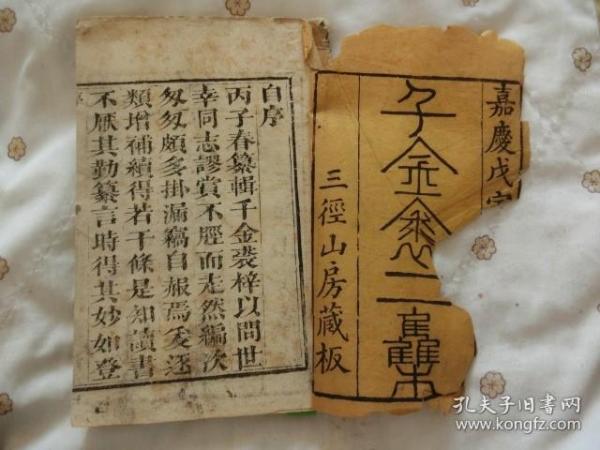 嘉慶戊寅
千金裘二集
三徑山房藏板
自序
丙子春纂輯千金裘梓以問世
幸同志謬賞不脛而走然編次
匆匆頗多掛漏竊自赧焉爰逐
類增補續得若干條是知讀書
不厭其勤纂言時得其妙如登
孔夫子旧書网
www.kongfz.com